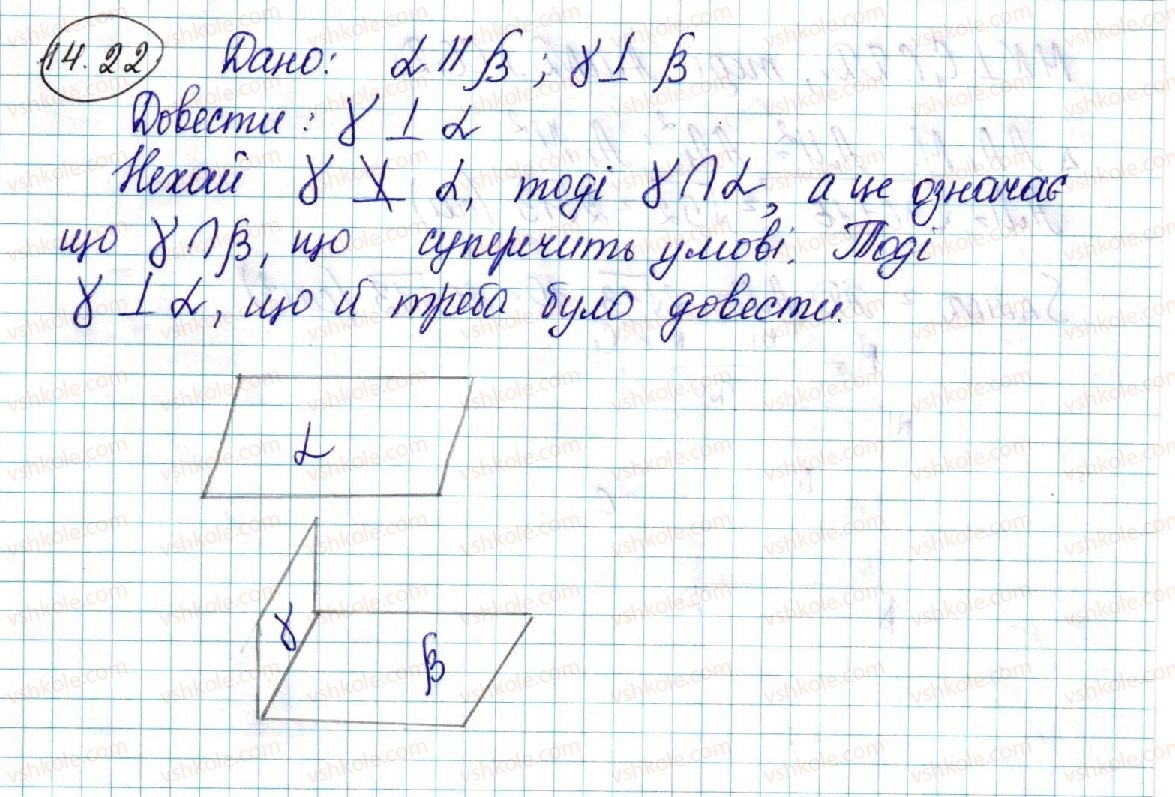 14.22 Дано: α || β ; γ ⊥ β
Довести: γ ⊥ α
Нехай γ ⊥̸ α, тоді γ ∩ α, а це означає
що γ ∩ β, що суперечить умові. Тоді
γ ⊥ α, що й треба було довести.
α
γ
β